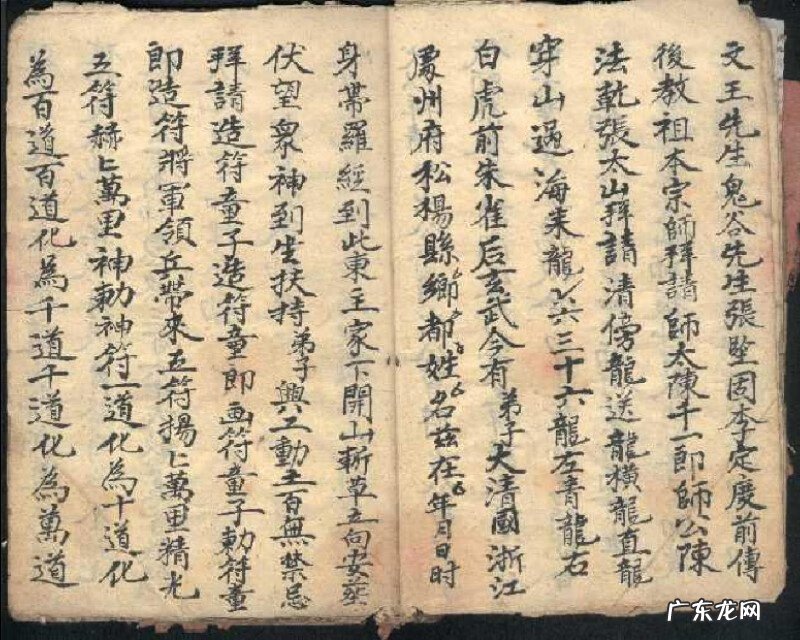 文王先生鬼谷先生張堅固李定度前傳
後教祖本宗師拜請師太陳千一郎師公陳
法乾張太山拜請清傍龍送龍橫龍直龍
穿山過海来龍六三十六龍左青龍右
白虎前朱雀后玄武今有弟子大清國浙江
處州府松楊縣鄉都姓名兹在年月日時
身帶羅經到此東主家下開山斬草立向安葬
伏望衆神到坐扶持弟子興工動土百無禁忌
拜請造符童子造符童郎画符童子勅符童
郎造符將軍領兵帶來五符揚匕萬里精光
五符赫匕萬里神勅神符一道化為十道化
為百道百道化為千道千道化為萬道
广东龙网